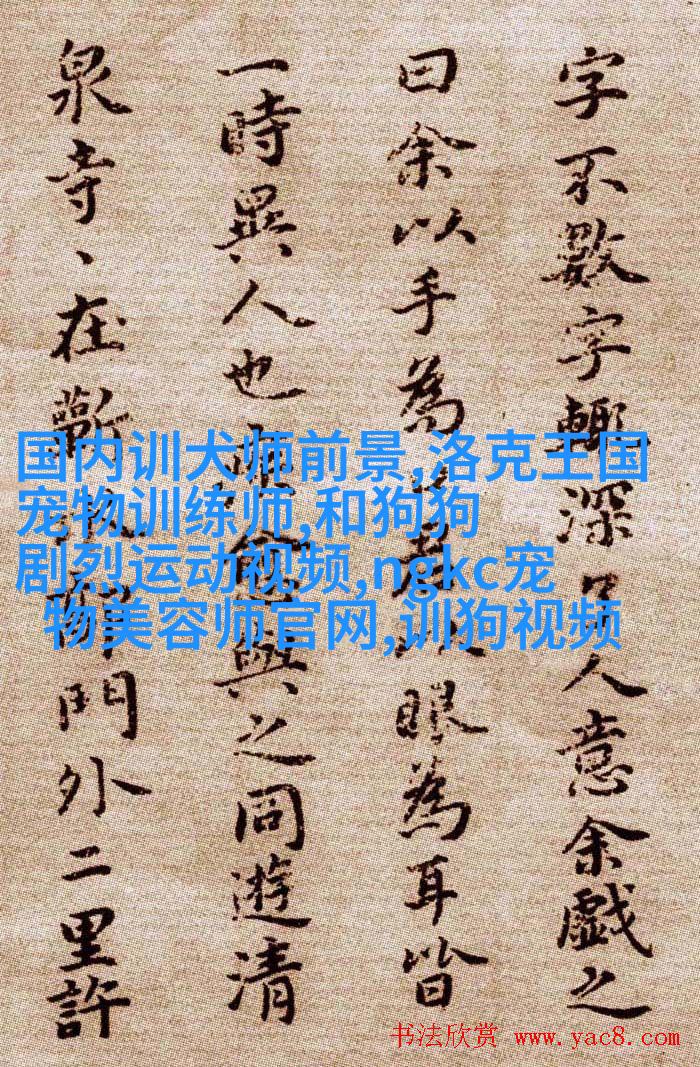 字不數字輒深人意余戲之
曰余以手為以眼為耳皆
一時異人也與之同遊清
泉寺、在蘄門外二里許
国内训犬师前景,洛克王国
宠物训练师,和狗狗
剧烈运动视频,ngkc宠
物美容师官网,训狗视频
书法欣赏 www.yac8.com